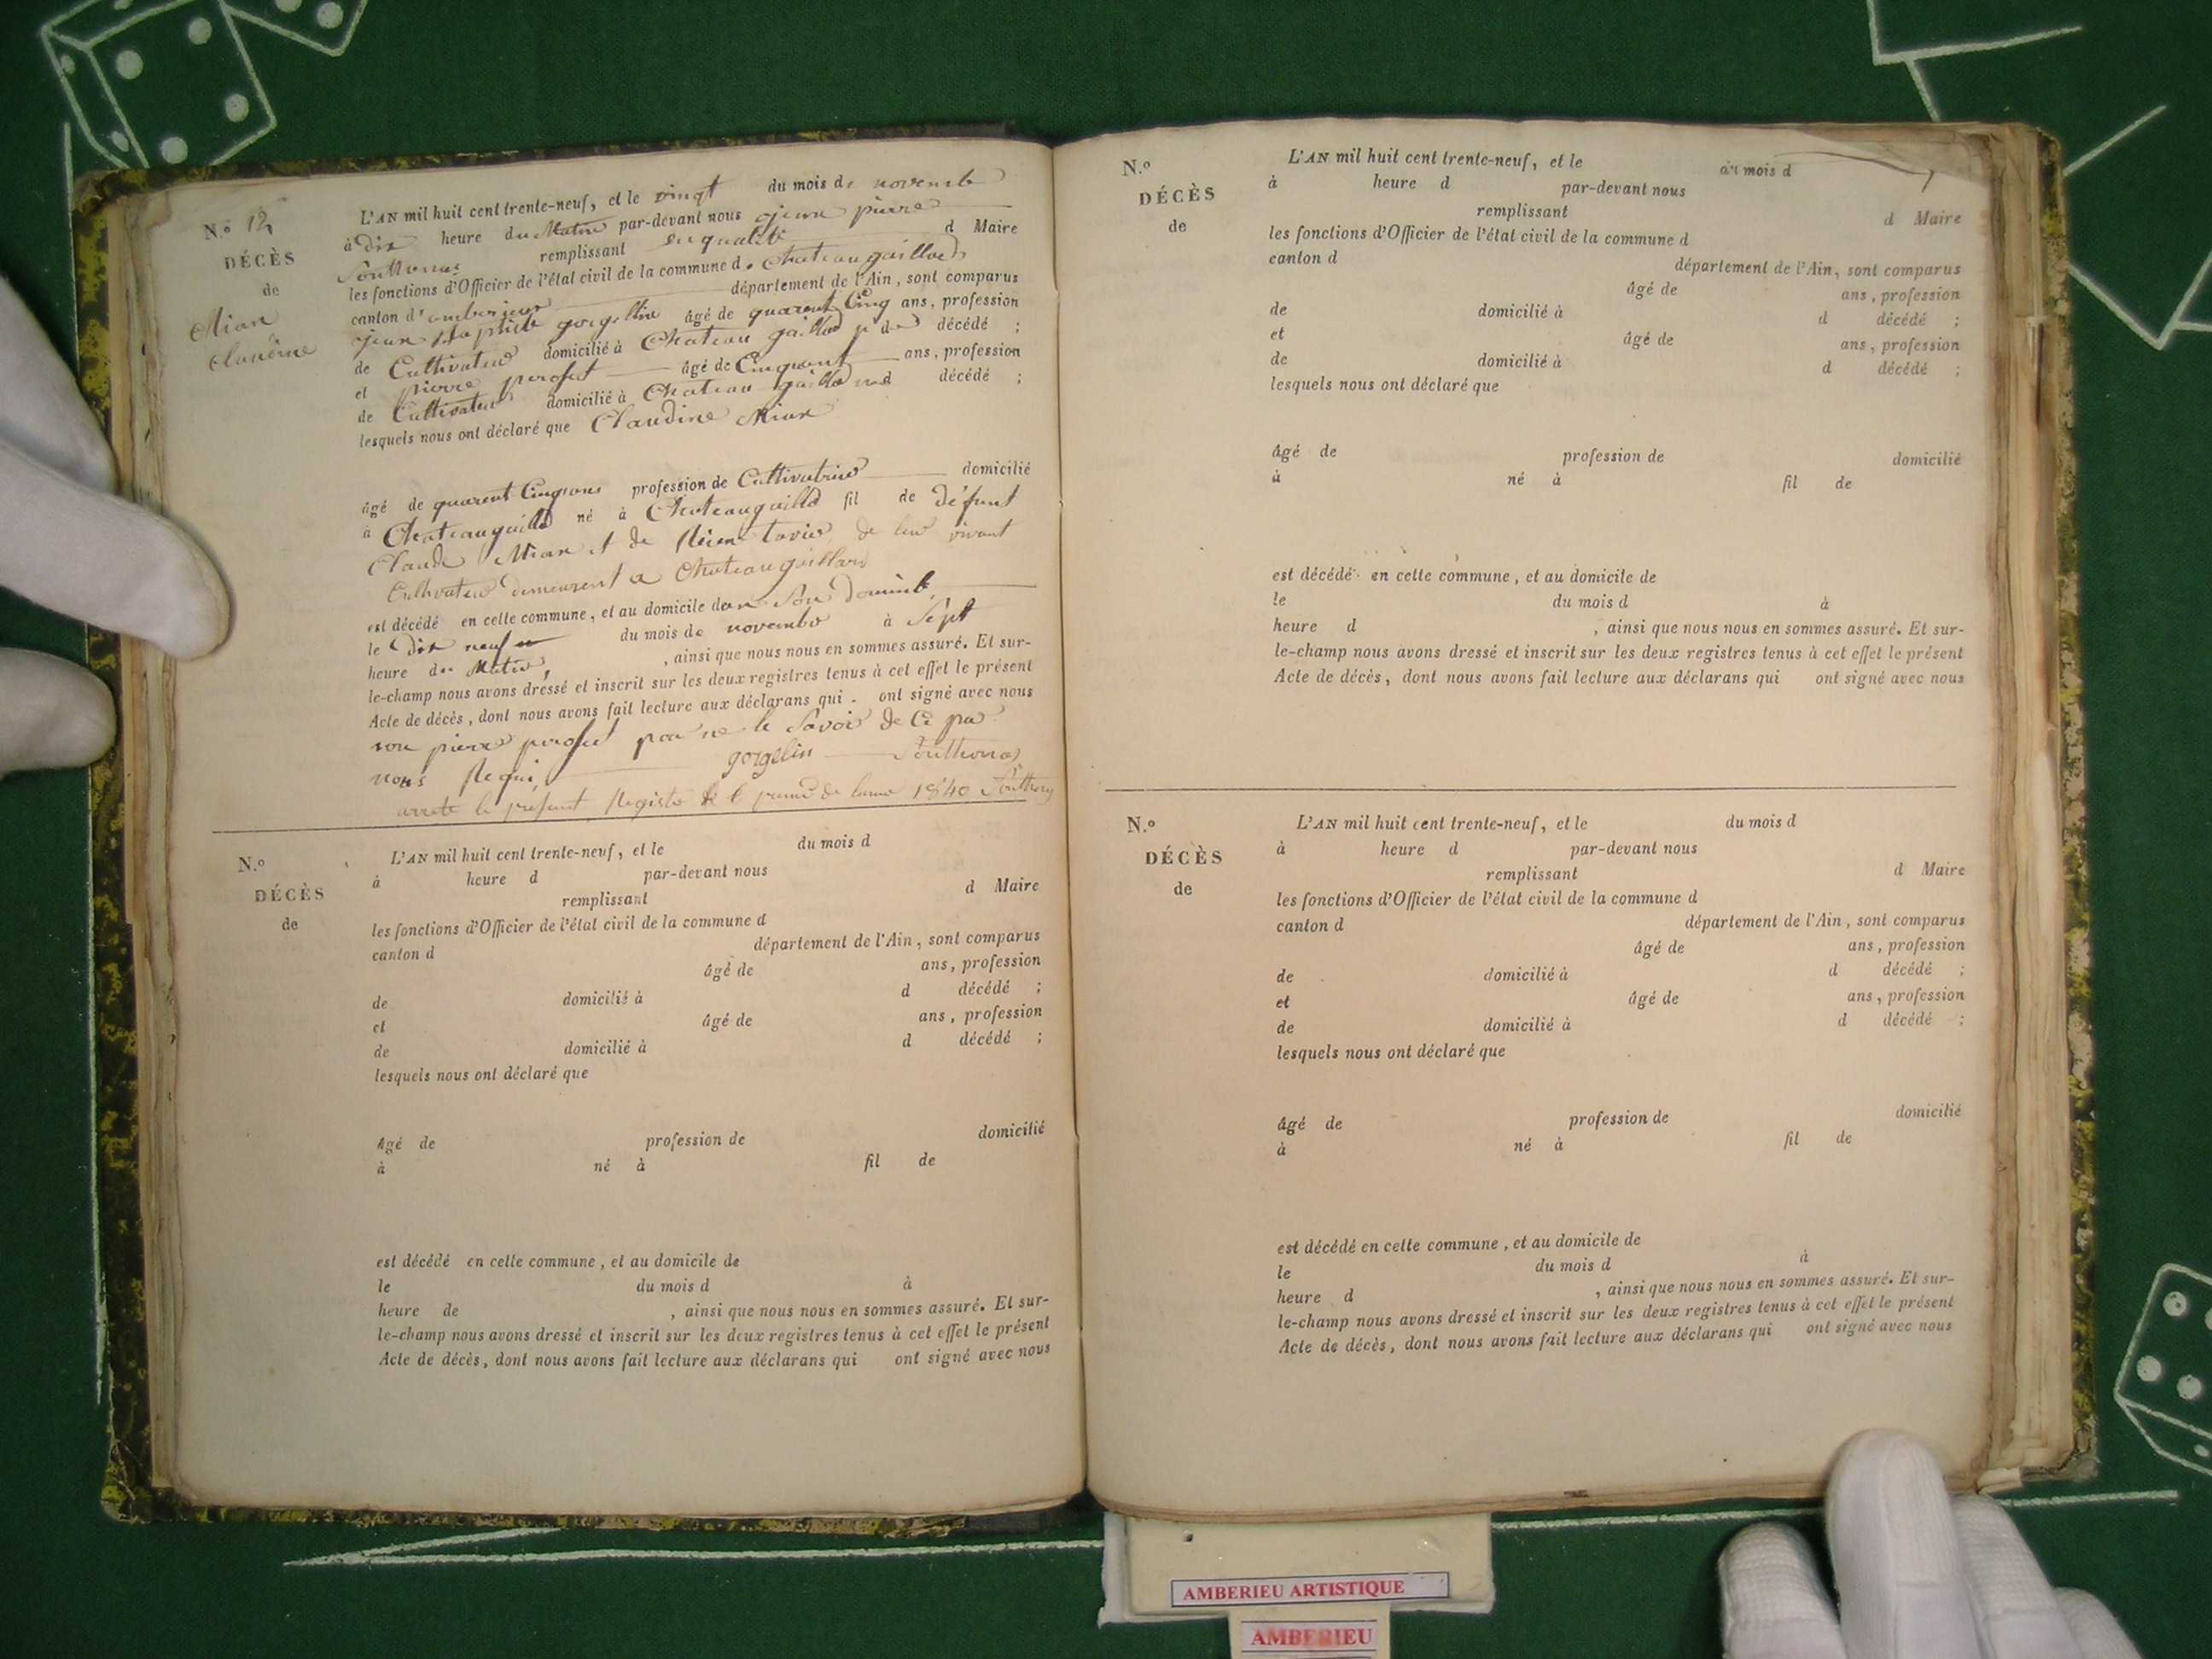 N.o 12
DÉCÈS
de
Mian
Claudine
L'AN mil huit cent trente-neuf, et le vingt du mois de novembre
à dix heure du Matin par-devant nous jean pierre
Southonas remplissant en qualité d Maire
les fonctions d'Officier de l'état civil de la commune d. Chateaugaillard
canton d'amberieux département de l'Ain, sont comparus
jean Baptiste gorgellin âgé de quarent Cinq ans, profession
de Cultivateur domicilié à Chateau gaillard décédé ;
et pierre âgé de Cinquant ans, profession
de Cultivateur domicilié à Chateau gaillard décédé ;
lesquels nous ont déclaré que Claudine Mian
âgé de quarent Cinq ans profession de Cultivatrice domicilié
à Chateaugaillard né à Chateaugaillard fil de défunt
Claude Mian et de de leur vivant
Cultivateur demeurent a Chateaugaillard
est décédé en cette commune, et au domicile dans Son Domicile
le Dix neuf du mois de novembre à Sept
heure du Matin, , ainsi que nous nous en sommes assuré. Et sur-
le-champ nous avons dressé et inscrit sur les deux registres tenus à cet effet le présent
Acte de décès, dont nous avons fait lecture aux déclarans qui . ont signé avec nous
non pierre pour ne le Savoir de Ce par
nous Requi, gorgelin Southonas
arrete le présent Registre le 1 de 1840 Southonas
N.o
DÉCÈS
de
L'AN mil huit cent trente-neuf, et le du mois d
à heure d par-devant nous
remplissant d Maire
les fonctions d'Officier de l'état civil de la commune d
canton d département de l'Ain, sont comparus
âgé de ans, profession
de domicilié à d décédé ;
et âgé de ans, profession
de domicilié à d décédé ;
lesquels nous ont déclaré que
âgé de profession de domicilié
à né à fil de
est décédé en cette commune, et au domicile de
le du mois d à
heure de , ainsi que nous nous en sommes assuré. Et sur-
le-champ nous avons dressé et inscrit sur les deux registres tenus à cet effet le présent
Acte de décès, dont nous avons fait lecture aux déclarans qui ont signé avec nous
N.o
DÉCÈS
de
L'AN mil huit cent trente-neuf, et le du mois d
à heure d par-devant nous
remplissant d Maire
les fonctions d'Officier de l'état civil de la commune d
canton d département de l'Ain, sont comparus
âgé de ans, profession
de domicilié à d décédé ;
et âgé de ans, profession
de domicilié à d décédé ;
lesquels nous ont déclaré que
âgé de profession de domicilié
à né à fil de
est décédé en cette commune, et au domicile de
le du mois d à
heure d , ainsi que nous nous en sommes assuré. Et sur-
le-champ nous avons dressé et inscrit sur les deux registres tenus à cet effet le présent
Acte de décès, dont nous avons fait lecture aux déclarans qui ont signé avec nous
N.o
DÉCÈS
de
L'AN mil huit cent trente-neuf, et le du mois d
à heure d par-devant nous
remplissant d Maire
les fonctions d'Officier de l'état civil de la commune d
canton d département de l'Ain, sont comparus
âgé de ans, profession
de domicilié à d décédé ;
et âgé de ans, profession
de domicilié à d décédé ;
lesquels nous ont déclaré que
âgé de profession de domicilié
à né à fil de
est décédé en cette commune, et au domicile de
le du mois d à
heure d , ainsi que nous nous en sommes assuré. Et sur-
le-champ nous avons dressé et inscrit sur les deux registres tenus à cet effet le présent
Acte de décès, dont nous avons fait lecture aux déclarans qui ont signé avec nous
AMBERIEU ARTISTIQUE
AMBERIEU